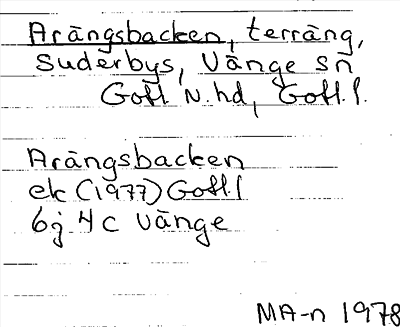 Arängsbacken, terräng,
Suderbys, Vänge sn
Gotl N. hd, Gotl. l.
Arängsbacken
ek (1977) Gotl. l
6j 4 c Vänge
MA-n 1978